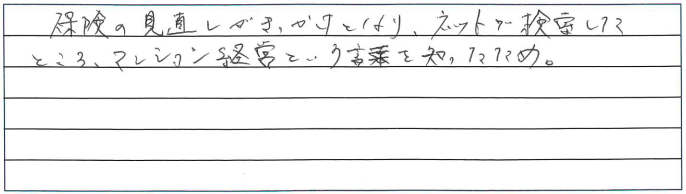 保険の見直しがきっかけとなり、ネットで検索した
ところ、マンション経営という言葉を知ったため。